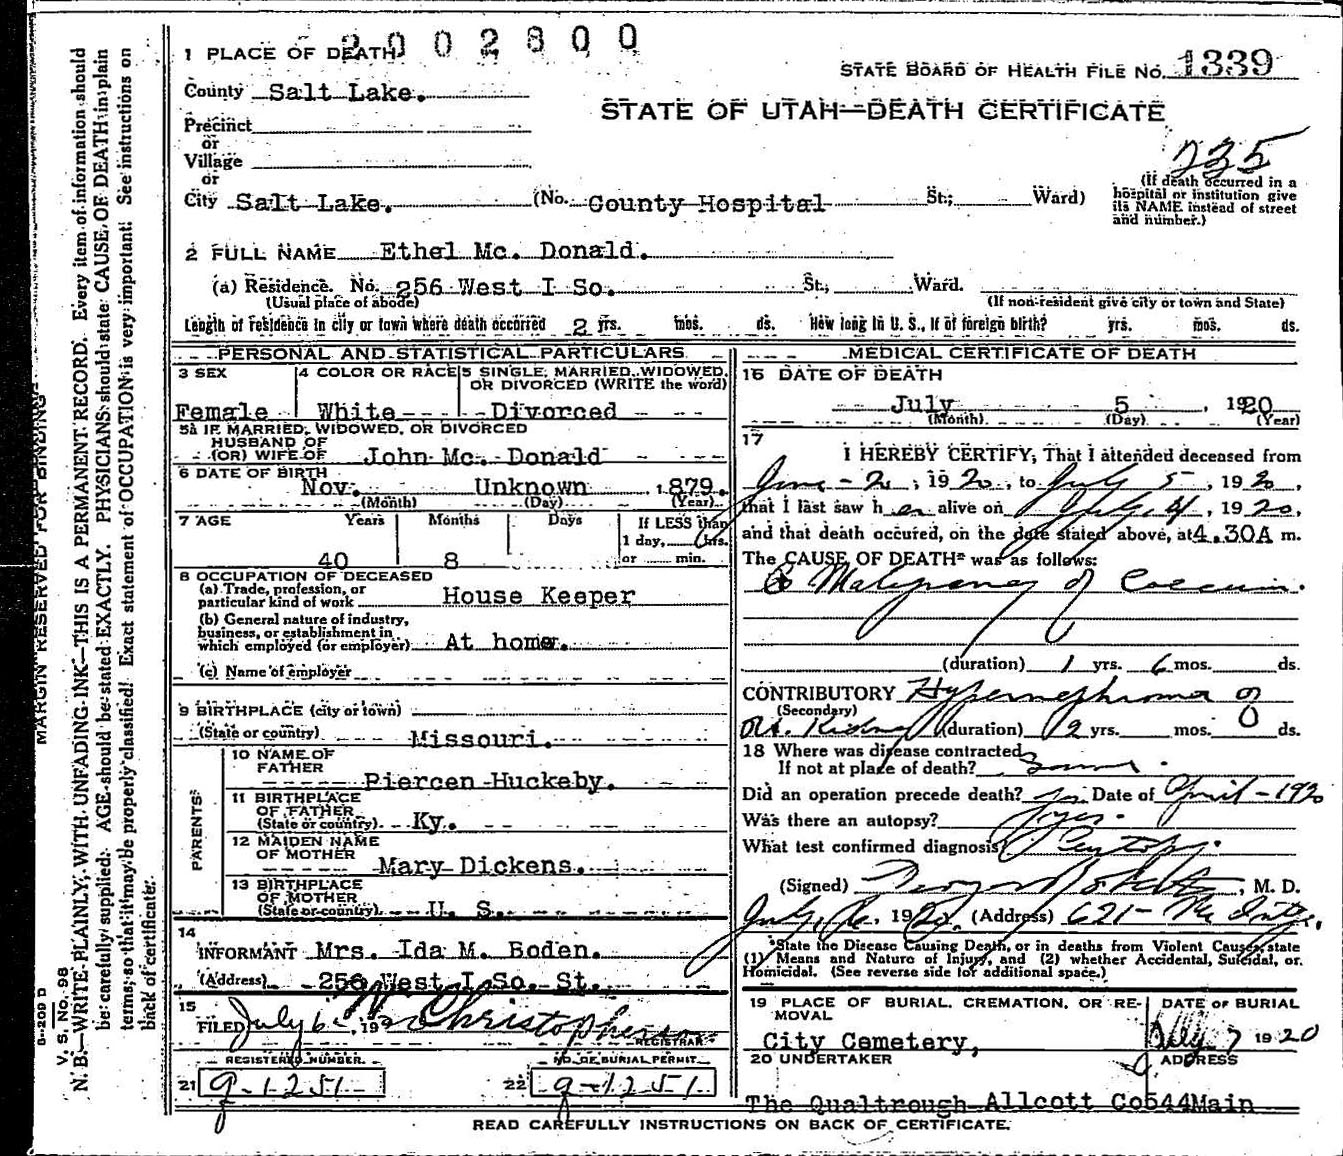 2002800
1 PLACE OF DEATH
STATE BOARD OF HEALTH FILE NO. 1339
County Salt Lake.
STATE OF UTAH—DEATH CERTIFICATE
Precinct
or
Village
or
735
(If death occurred in a hospital or institution give its NAME instead of street and number.)
City Salt Lake. (No. County Hospital St; Ward)
2 FULL NAME Ethel Mc. Donald.
(a) Residence. No. 256 West I So. St., Ward.
(Usual place of abode) (If non-resident give city or town and State)
Length of residence in city or town where death occurred 2 yrs. mos. ds. How long in U. S., if of foreign birth? yrs. mos. ds.
PERSONAL AND STATISTICAL PARTICULARS
3 SEX 4 COLOR OR RACE 5 SINGLE, MARRIED, WIDOWED, OR DIVORCED (WRITE the word)
Female White Divorced
5a IF MARRIED, WIDOWED, OR DIVORCED
HUSBAND OF
(OR) WIFE OF John Mc. Donald
6 DATE OF BIRTH
Nov. Unknown 1879.
(Month) (Day) (Year)
7 AGE Years Months Days If LESS than
1 day, hrs.
40 8 or min.
8 OCCUPATION OF DECEASED
(a) Trade, profession, or
particular kind of work House Keeper
(b) General nature of industry,
business, or establishment in
which employed (or employer) At home.
(c) Name of employer
9 BIRTHPLACE (city or town)
(State or country) Missouri.
PARENTS
10 NAME OF
FATHER Piercen Huckeby.
11 BIRTHPLACE
OF FATHER
(State or country) Ky.
12 MAIDEN NAME
OF MOTHER Mary Dickens.
13 BIRTHPLACE
OF MOTHER
(State or country) U. S.
14
INFORMANT Mrs. Ida M. Boden.
(Address) 256 West I So. St.
15
FILED July 6, 1920 Christopherson
REGISTRAR
REGISTERED NUMBER. NO. OF BURIAL PERMIT
21 9-1251 22 9-1251
MEDICAL CERTIFICATE OF DEATH
16 DATE OF DEATH
July 5, 1920
(Month) (Day) (Year)
17
I HEREBY CERTIFY, That I attended deceased from
June - 2, 1920, to July 5, 1920,
that I last saw her alive on July 4, 1920,
and that death occured, on the date stated above, at 4.30A m.
The CAUSE OF DEATH* was as follows:
Malignancy of Coecum.
(duration) 1 yrs. 6 mos. ds.
CONTRIBUTORY Hypernephroma of
(Secondary)
Rt. Kidney (duration) 2 yrs. mos. ds.
18 Where was disease contracted
If not at place of death?
Did an operation precede death? yes Date of April - 1920
Was there an autopsy? yes.
What test confirmed diagnosis
(Signed) M. D.
July 6, 1920. (Address) 621 - McIntyre.
*State the Disease Causing Death, or in deaths from Violent Causes, state
(1) Means and Nature of Injury, and (2) whether Accidental, Suicidal, or
Homicidal. (See reverse side for additional space.)
19 PLACE OF BURIAL, CREMATION, OR REMOVAL DATE OF BURIAL
City Cemetery, July 7 1920
20 UNDERTAKER ADDRESS
The Qualtrough Allcott Co 544 Main
READ CAREFULLY INSTRUCTIONS ON BACK OF CERTIFICATE.
MARGIN RESERVED FOR BINDING
N. B.—WRITE PLAINLY, WITH UNFADING INK—THIS IS A PERMANENT RECORD. Every item of information should
be carefully supplied. AGE should be stated EXACTLY. PHYSICIANS should state CAUSE OF DEATH in plain
terms, so that it may be properly classified. Exact statement of OCCUPATION is very important. See instructions on
back of certificate.
V. S. No. 98